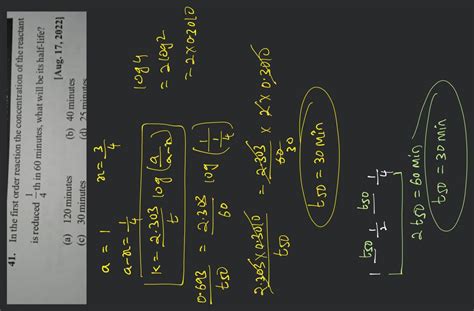 41. In the first order reaction the concentration of the reactant
is reduced 1/4 th in 60 minutes, what will be its half-life?
[Aug. 17, 2022]
(a) 120 minutes (b) 40 minutes
(c) 30 minutes (d) 25 minutes
a = 1
a-x = 1/4 x = 3/4
K = 2.303/t log (a/a-x)
log 4
= 2 log 2
= 2 x 0.3010
0.693/t50 = 2.303/60 log (1/1/4)
2.303 x 0.3010/t50 = 2.303/60 x 2 x 0.3010
30
t50 = 30 min
1 t50 1/2 t50 1/4
2 t50 = 60 min
t50 = 30 min